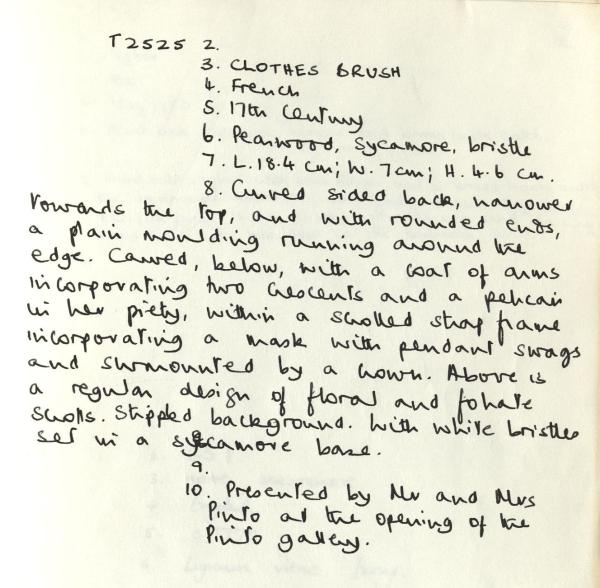 T2525 2.
3. CLOTHES BRUSH
4. French
5. 17th Century
6. Pearwood, sycamore, bristle
7. L. 18.4 cm; W. 7cm; H. 4.6 cm.
8. Curved sided back, narrower
towards the top, and with rounded ends,
a plain moulding running around the
edge. Carved, below, with a coat of arms
incorporating two crescents and a pelican
in her piety, within a scrolled strap frame
incorporating a mask with pendant swags
and surmounted by a crown. Above is
a regular design of floral and foliate
scrolls. Stippled background. With white bristles
set in a sycamore base.
9.
10. Presented by Mr and Mrs
Pinto at the opening of the
Pinto gallery.